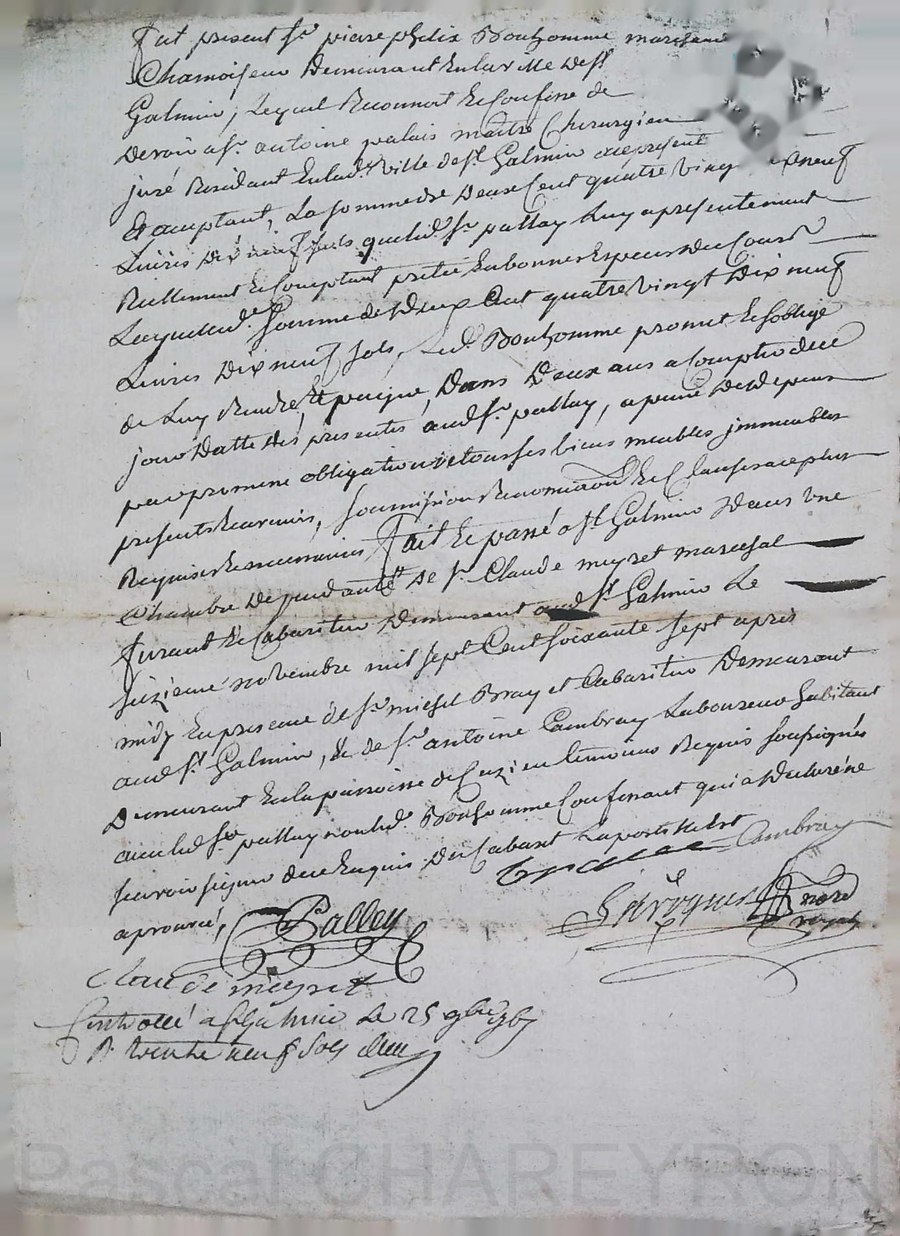 Fut present Sr. piere phelix Bonhomme marchand
Chamoiseur Demeurant En la ville De St
Galmier, Lequel Reconnoit Et Confesse de
Devoir a Sr. antoine palais maitre Chirurgien
juré Residant En lad. ville de St. Galmier acceptent
La somme de Deux Cent quatre vingt dix neuf
Livres Dix neuf sols que led. Sr. pallay Luy a presentement
Reellement Et Comptant preté En bonnes Especes Du Cours
Laquelle de. somme de Deux Cent quatre vingt Dix neuf
Livres Dix neuf sols, Led. Bonhomme promet Et soblige
de Luy Rendre Et payer, Dans Deux ans a Compter de ce
jour Datte Des presentes aud. Sr. pallay, a peine De Depens
par promesse obligation de tous ses biens meubles jmmeubles
presents Et avenir, soumission Renonciation Et Clauses a ce plus
Requises Et necessaires Fait Et passé a St. Galmier Dans une
Chambre Dependante De Sr. Claude meyret marechal
Et Cabaretier Demeurant aud. St. Galmier Le
novembre mil sept Cent soixante sept apres
midy En presence de Sr. michel Bray et Cabaretier Demeurant
aud. St. Galmier, & de Sr. antoine Cambray Laboureur habitant
Demeurant En la parroisse de Cuzieu temoins Requis soussignés
avec led. Sr. pallay non led. Bonhomme Confessant qui a Declaré ne
scavoir signer de ce Enquis
Cambray
aprouvé,
Palley
Claude meyret
Controllé a St Galmier Le 25 9bre 1767
R. trente neuf sols
Pascal CHAREYRON